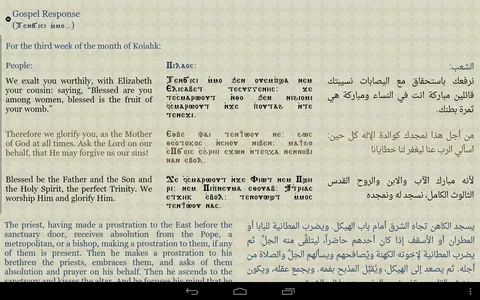 Gospel Response
(Ⲧⲉⲛϭⲓⲥⲓ ⲙ̀ⲙⲟ...)
For the third week of the month of Koiahk:
People:
We exalt you worthily, with Elizabeth
your cousin: saying, "Blessed are you
among women, blessed is the fruit of
your womb."
Ⲡⲓⲗⲁⲟⲥ:
Ⲧⲉⲛϭⲓⲥⲓ ⲙ̀ⲙⲟ ϧⲉⲛ ⲟⲩⲉⲙⲡϣⲁ ⲛⲉⲙ
Ⲉⲗⲓⲥⲁⲃⲉⲧ ⲧⲉⲥⲩⲅⲅⲉⲛⲏⲥ: ϫⲉ
ⲧⲉⲥ̀ⲙⲁⲣⲱⲟⲩⲧ ⲛ̀ⲑⲟ ϧⲉⲛ ⲛⲓϩⲓⲟⲙⲓ
ϥ̀ⲥ̀ⲙⲁⲣⲱⲟⲩⲧ ⲛ̀ϫⲉ ⲡⲟⲩⲧⲁϩ ⲛ̀ⲧⲉ
ⲧⲉⲛⲉϫⲓ.
الشعب:
نرفعك باستحقاق مع اليصابات نسيبتك
قائلين مباركة انت في النساء ومباركة هي
ثمرة بطنك.
Therefore we glorify you, as the Mother
of God at all times. Ask the Lord on our
behalf, that He may forgive us our sins!
Ⲉⲑⲃⲉ ⲫⲁⲓ ⲧⲉⲛϯⲱⲟⲩ ⲛⲉ: ϩⲱⲥ
ⲑⲉⲟⲧⲟⲕⲟⲥ ⲛ̀ⲥⲏⲟⲩ ⲛⲓⲃⲉⲛ: ⲙⲁϯϩⲟ
ⲉⲠϭⲟⲓⲥ ⲉ̀ϩ̀ⲣⲏⲓ ⲉϫⲱⲛ ⲛ̀ⲧⲉϥⲭⲁ ⲛⲉⲛⲛⲟⲃⲓ
ⲛⲁⲛ ⲉ̀ⲃⲟⲗ.
من أجل هذا نمجدك كوالدة الإله كل حين:
اسألي الرب عنا ليغفر لنا خطايانا
Blessed be the Father and the Son and
the Holy Spirit, the perfect Trinity. We
worship Him and glorify Him.
Ϫⲉ ϥ̀ⲥ̀ⲙⲁⲣⲱⲟⲩⲧ ⲛ̀ϫⲉ Ⲫⲓⲱⲧ ⲛⲉⲙ Ⲡϣⲏ
ⲣⲓ: ⲛⲉⲙ Ⲡⲓⲡⲛⲉⲩⲙⲁ ⲉⲑⲟⲩⲁⲃ: Ϯⲧⲣⲓⲁⲥ
ⲉⲧϫⲏⲕ ⲉ̀ⲃⲟⲗ: ⲧⲉⲛⲟⲩⲱϣⲧ ⲙ̀ⲙⲟⲥ
ⲧⲉⲛϯⲱⲟⲩ ⲛⲁⲥ.
لأنه مبارك الآب والابن والروح القدس
الثالوث الكامل، نسجد له ونمجده
The priest, having made a prostration to the East before the
sanctuary door, receives absolution from the Pope, a
metropolitan, or a bishop, making a prostration to them, if any
of them is present. Then he makes a prostration to his
brethren the priests, embraces them, and asks of them
absolution and prayer on his behalf. Then he ascends to the
يسجد الكاهن تجاه الشرق أمام باب الهيكل، ويضرب المطانية للبابا أو
المطران أو الأسقف إذا كان أحدهم حاضراً، ليتلقى منه الحِلّ. ثم
يضرب المطانية لإخوته الكهنة ويُصافحهم ويسألهم الحِلّ والصلاة من
أجله. ثم يصعد إلى الهيكل، ويُقبّل المذبح بفمه، ويجمع عقله، ويكون